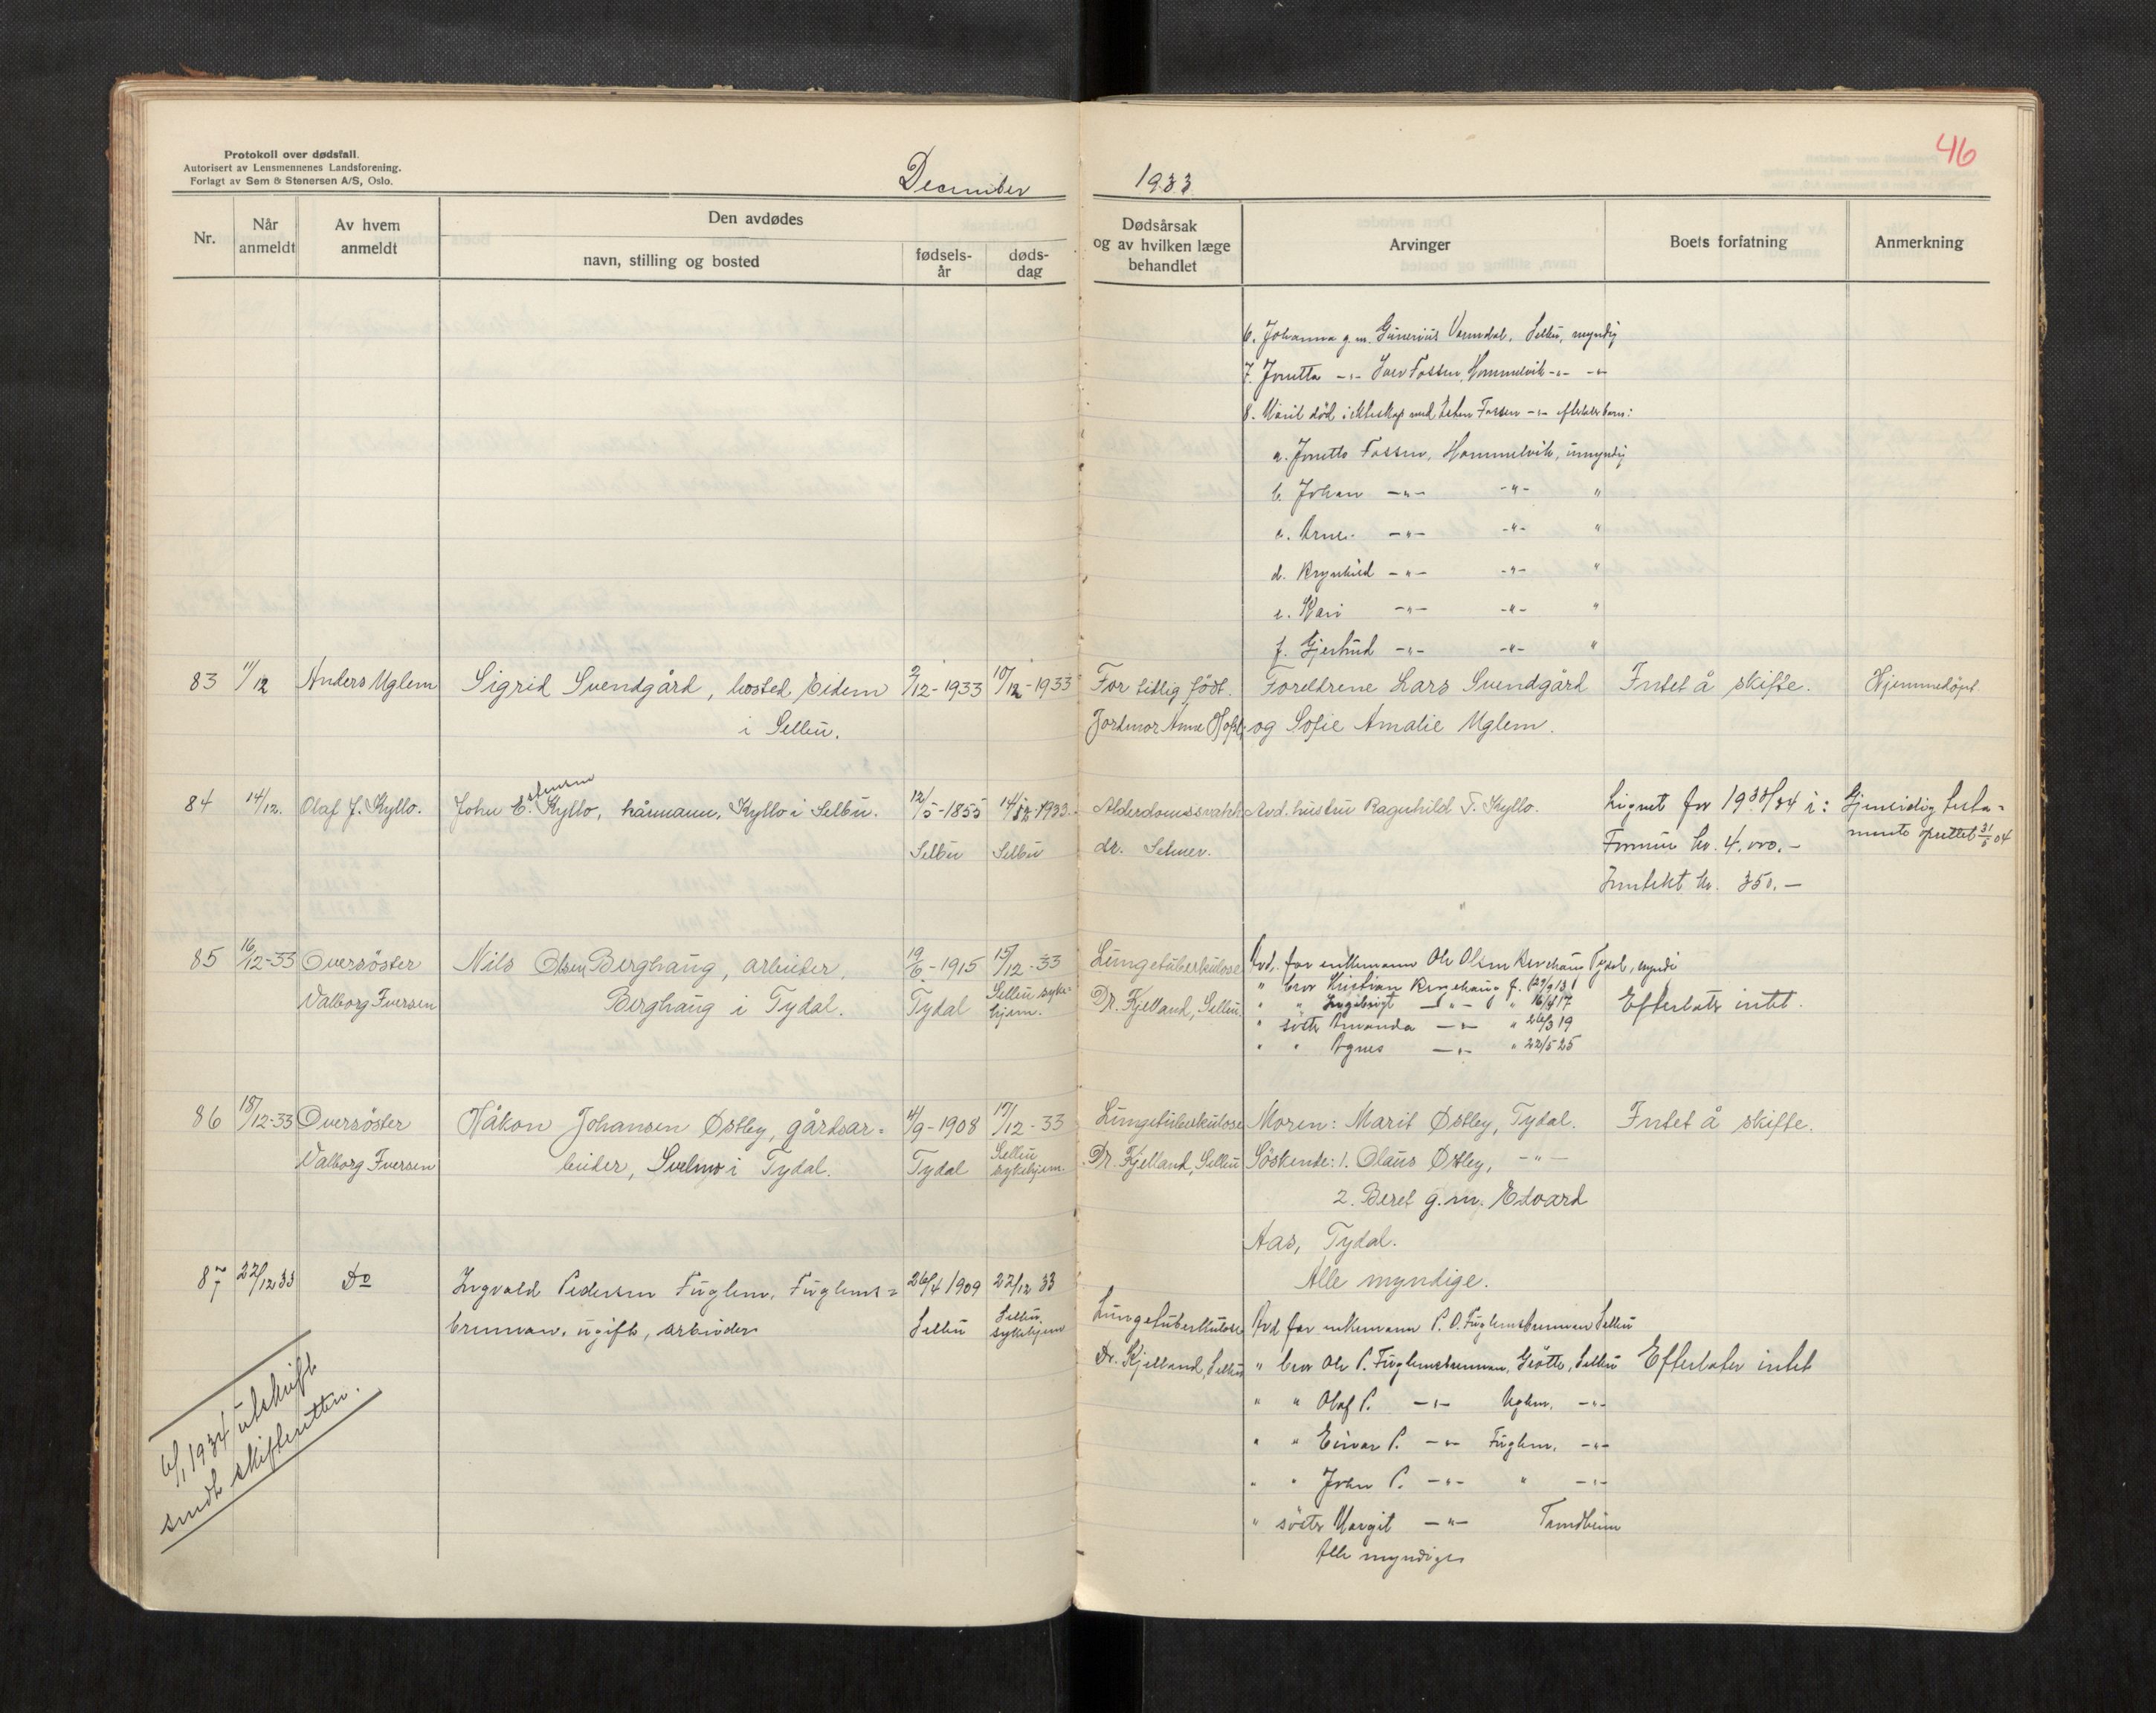 Protokoll over dødsfall.
Autorisert av Lensmennenes Landsforening.
Forlagt av Sem & Stenersen A/S, Oslo.
December 1933
46
Nr.
Når anmeldt
Av hvem anmeldt
Den avdødes
navn, stilling og bosted
fødsels-år
døds-dag
Dødsårsak og av hvilken læge behandlet
Arvinger
Boets forfatning
Anmerkning
6. Johanna g.m. Gunerius Selbu, myndig
7. Jonetta -"- Fossen, Hommelvik -"- -"-
8. Marit död i ekteskap med Esten Fossen -"- efterlater barn:
a. Jonetta Fossen, Hommelvik, umyndig
b. Johan -"- -"- "
c. Arne -"- -"- "
d. Brynhild -"- -"- "
e. Kari -"- -"- "
f. Gjertrud -"- -"- "
83 11/12 Anders Uglem Sigrid Svendgård, bosted Eidem 9/12-1933 10/12-1933 For tidlig födt. Foreldrene Lars Svendgård Intet å skifte. Hjemmedöpt.
i Selbu. Jordmor Anne og Sofie Amalie Uglem.
84 14/12. Olaf J. Kyllo. John E. Kyllo, kårmann, Kyllo i Selbu. 12/5-1855 14/12-1933. Alderdomssvakh. Avd. hustru Ragnhild T. Kyllo. Lignet for 1933/34 i: Gjensidig testa-
Estensen
Selbu Selbu dr. Selmer. Formue kr. 4.000.- mente oprettet 31/5 04
Inntekt kr. 350.-
85 16/12-33 Oversöster Nils Olsen Berghaug, arbeider. 19/6-1915 15/12-33 Lungetuberkulose Avd. far enkemann Ole Olsen Berghaug Tydal, myndig
Valborg Iversen Berghaug i Tydal. Tydal Selbu syke-hjem. Dr. Kjelland, Selbu. " bror Kristian Berghaug f. 29/9 13
" " Ingebrigt -"- " 16/4 17 Efterlater intet.
" söster Amanda -"- " 26/3 19
" " Agnes -"- " 22/5 25
86 18/12-33 Oversöster Håkon Johansen Østby, gårdsar- 4/9-1908 17/12-33 Lungetuberkulose Moren: Marit Østby, Tydal. Intet å skifte.
Valborg Iversen beider, i Tydal. Tydal Selbu sykehjem. Dr. Kjelland, Selbu Söskende: 1. Olaus Østby, -"-
2. Beret g.m. Edvard
Aas, Tydal.
Alle myndige.
87 22/12 33 Do Ingvald Pedersen Fuglem, Fuglems- 26/4 1909 22/12 33
brennan, ugift, arbeider Selbu Selbu sykehjem Lungetuberkulose Avd far enkemann P. O. Fuglemsbrennan Selbu
Dr. Kjelland, Selbu " bror Ole P. Fuglemsbrennan, Selbu Efterlater intet
" " Olaf P. -"- Uglem, -"-
" " Einar P. -"- Fuglem, -"-
" " John P. -"- " -"-
" söster Margit -"- Trondheim
Alle myndige
6/1 1934 utskrift
sendt skifteretten.